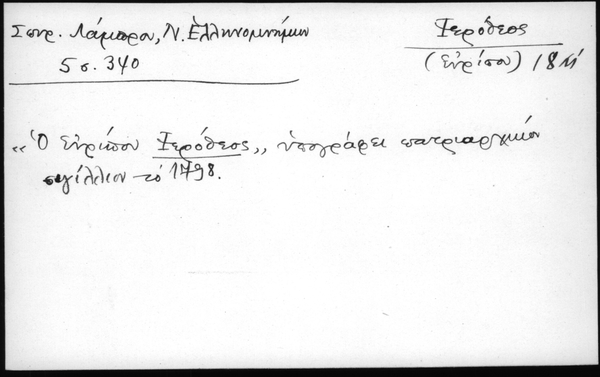 Σπυρ. Λάμπρου, Ν. Ἑλληνομνήμων
5 σ. 340
Ἱερόθεος
(Εὐρίπου) 18
„Ὁ Εὐρίπου Ἱερόθεος„ ὑπογράφει πατριαρχικὸν
σιγίλλιον τὸ 1798.